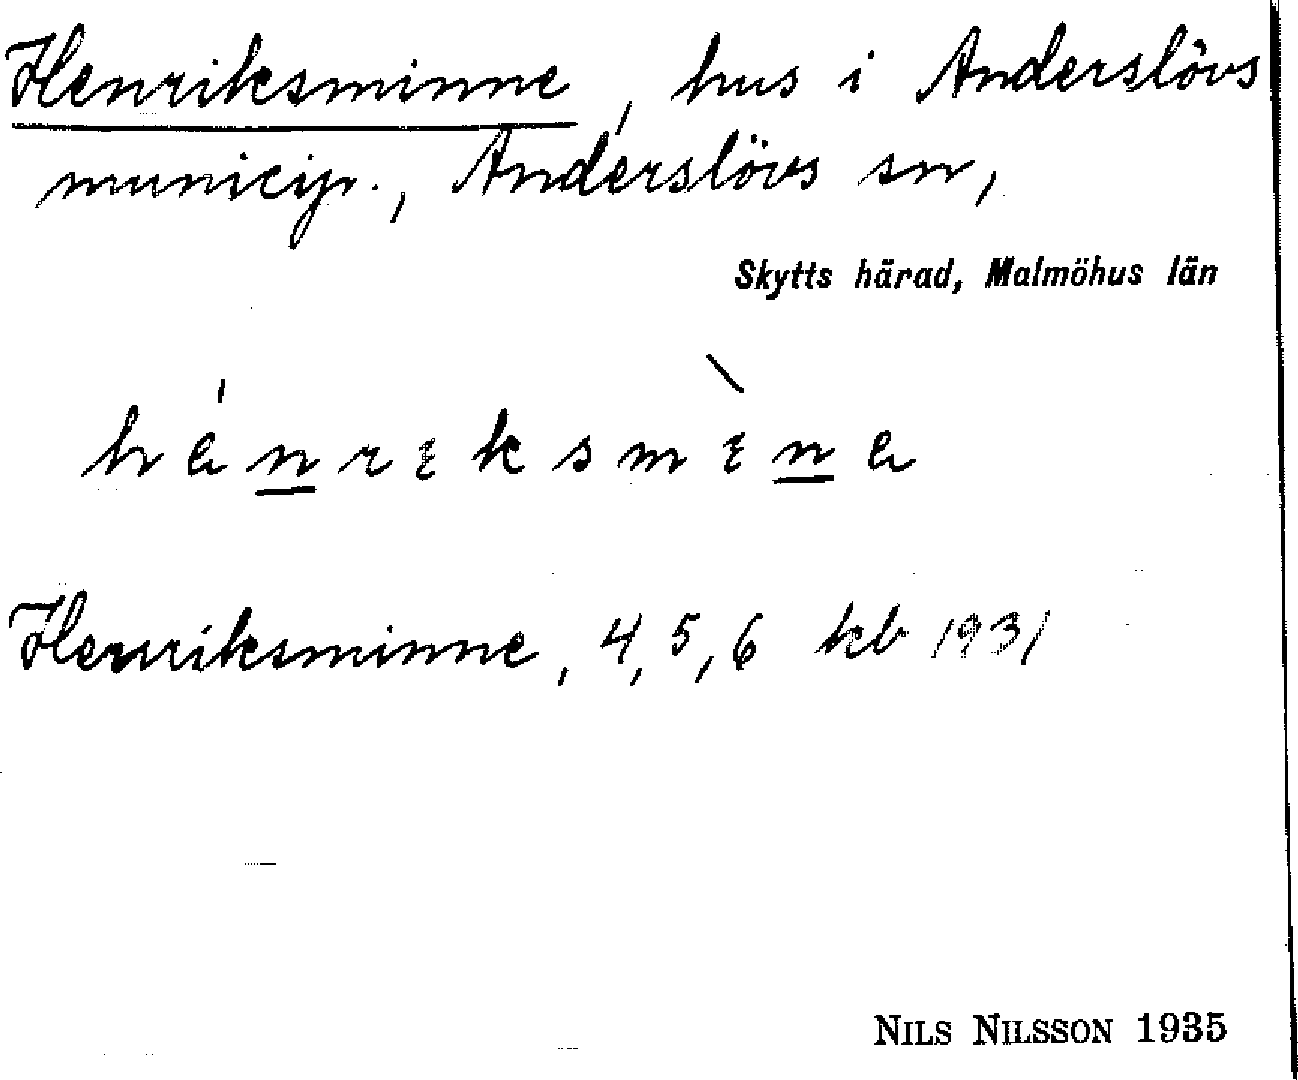 Henriksminne, hus i Anderslövs
municip., Anderslövs sn,
Skytts härad, Malmöhus län
Henriksminne, 4, 5, 6 kb 1931
NILS NILSSON 1935